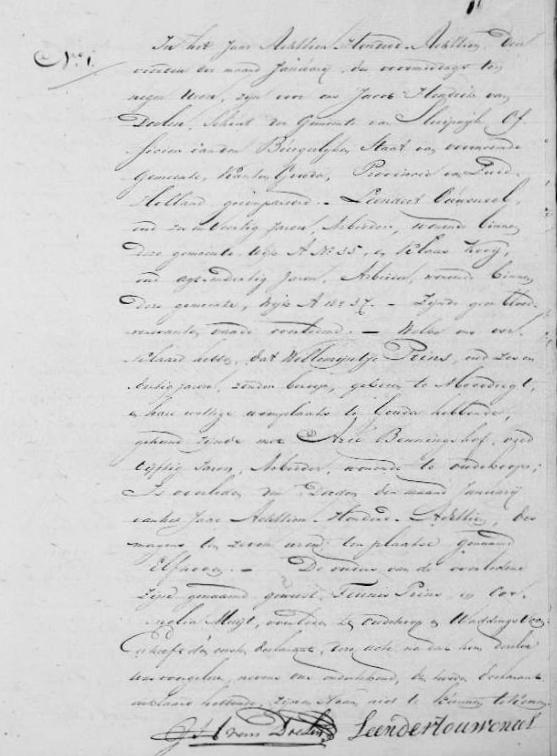 No. 1.
In het Jaar Achttien Honderd Achttien, den
vierden der maand Januarij, des voormiddags ten
negen uren, zijn voor ons Jacob Hendrik van
Doelen, Schout der Gemeente van Sluipwijk Of
ficier van den Burgerlijken Staat van voornoemde
Gemeente, Kanton Gouda, Provincie van Zuid
Holland gecompareerd. - Leendert
oud Jaren, Arbeider, wonende binnen
deze gemeente, Wijk A No. 35, en Klaas Kooij,
oud agt en dertig Jaren, Arbeider, wonende binnen
deze gemeente, Wijk A No. 37. - Zijnde geen bloed-
verwanten van de overledene. - Welke ons ver-
klaard hebben, dat Willemijntje Prins, oud
Jaren, zonder beroep, geboren te Moordregt,
en hare wettige woonplaats te Gouda hebbende,
gehuwd zijnde met Arie Benningshof, oud
vijftig Jaren, Arbeider, wonende te oudekoop;
Is overleden den Derden der maand Januarij
van het Jaar Achttien Honderd Achttien, des
morgens ten zeven uren, ten plaatse genaamd
Elfhoeven. - De ouders van de overledene
zijn genaamd geweest, Teunis Prins, en Cor-
nelia Muijt, overleden te oudekoop en Waddingsveen
En heeft de eerste declarant, deze acte na dat hem dezelve
was voorgelezen, nevens ons onderteekend, de tweede declarant
verklaard hebbende, zijnen Naam niet te kunnen teekenen